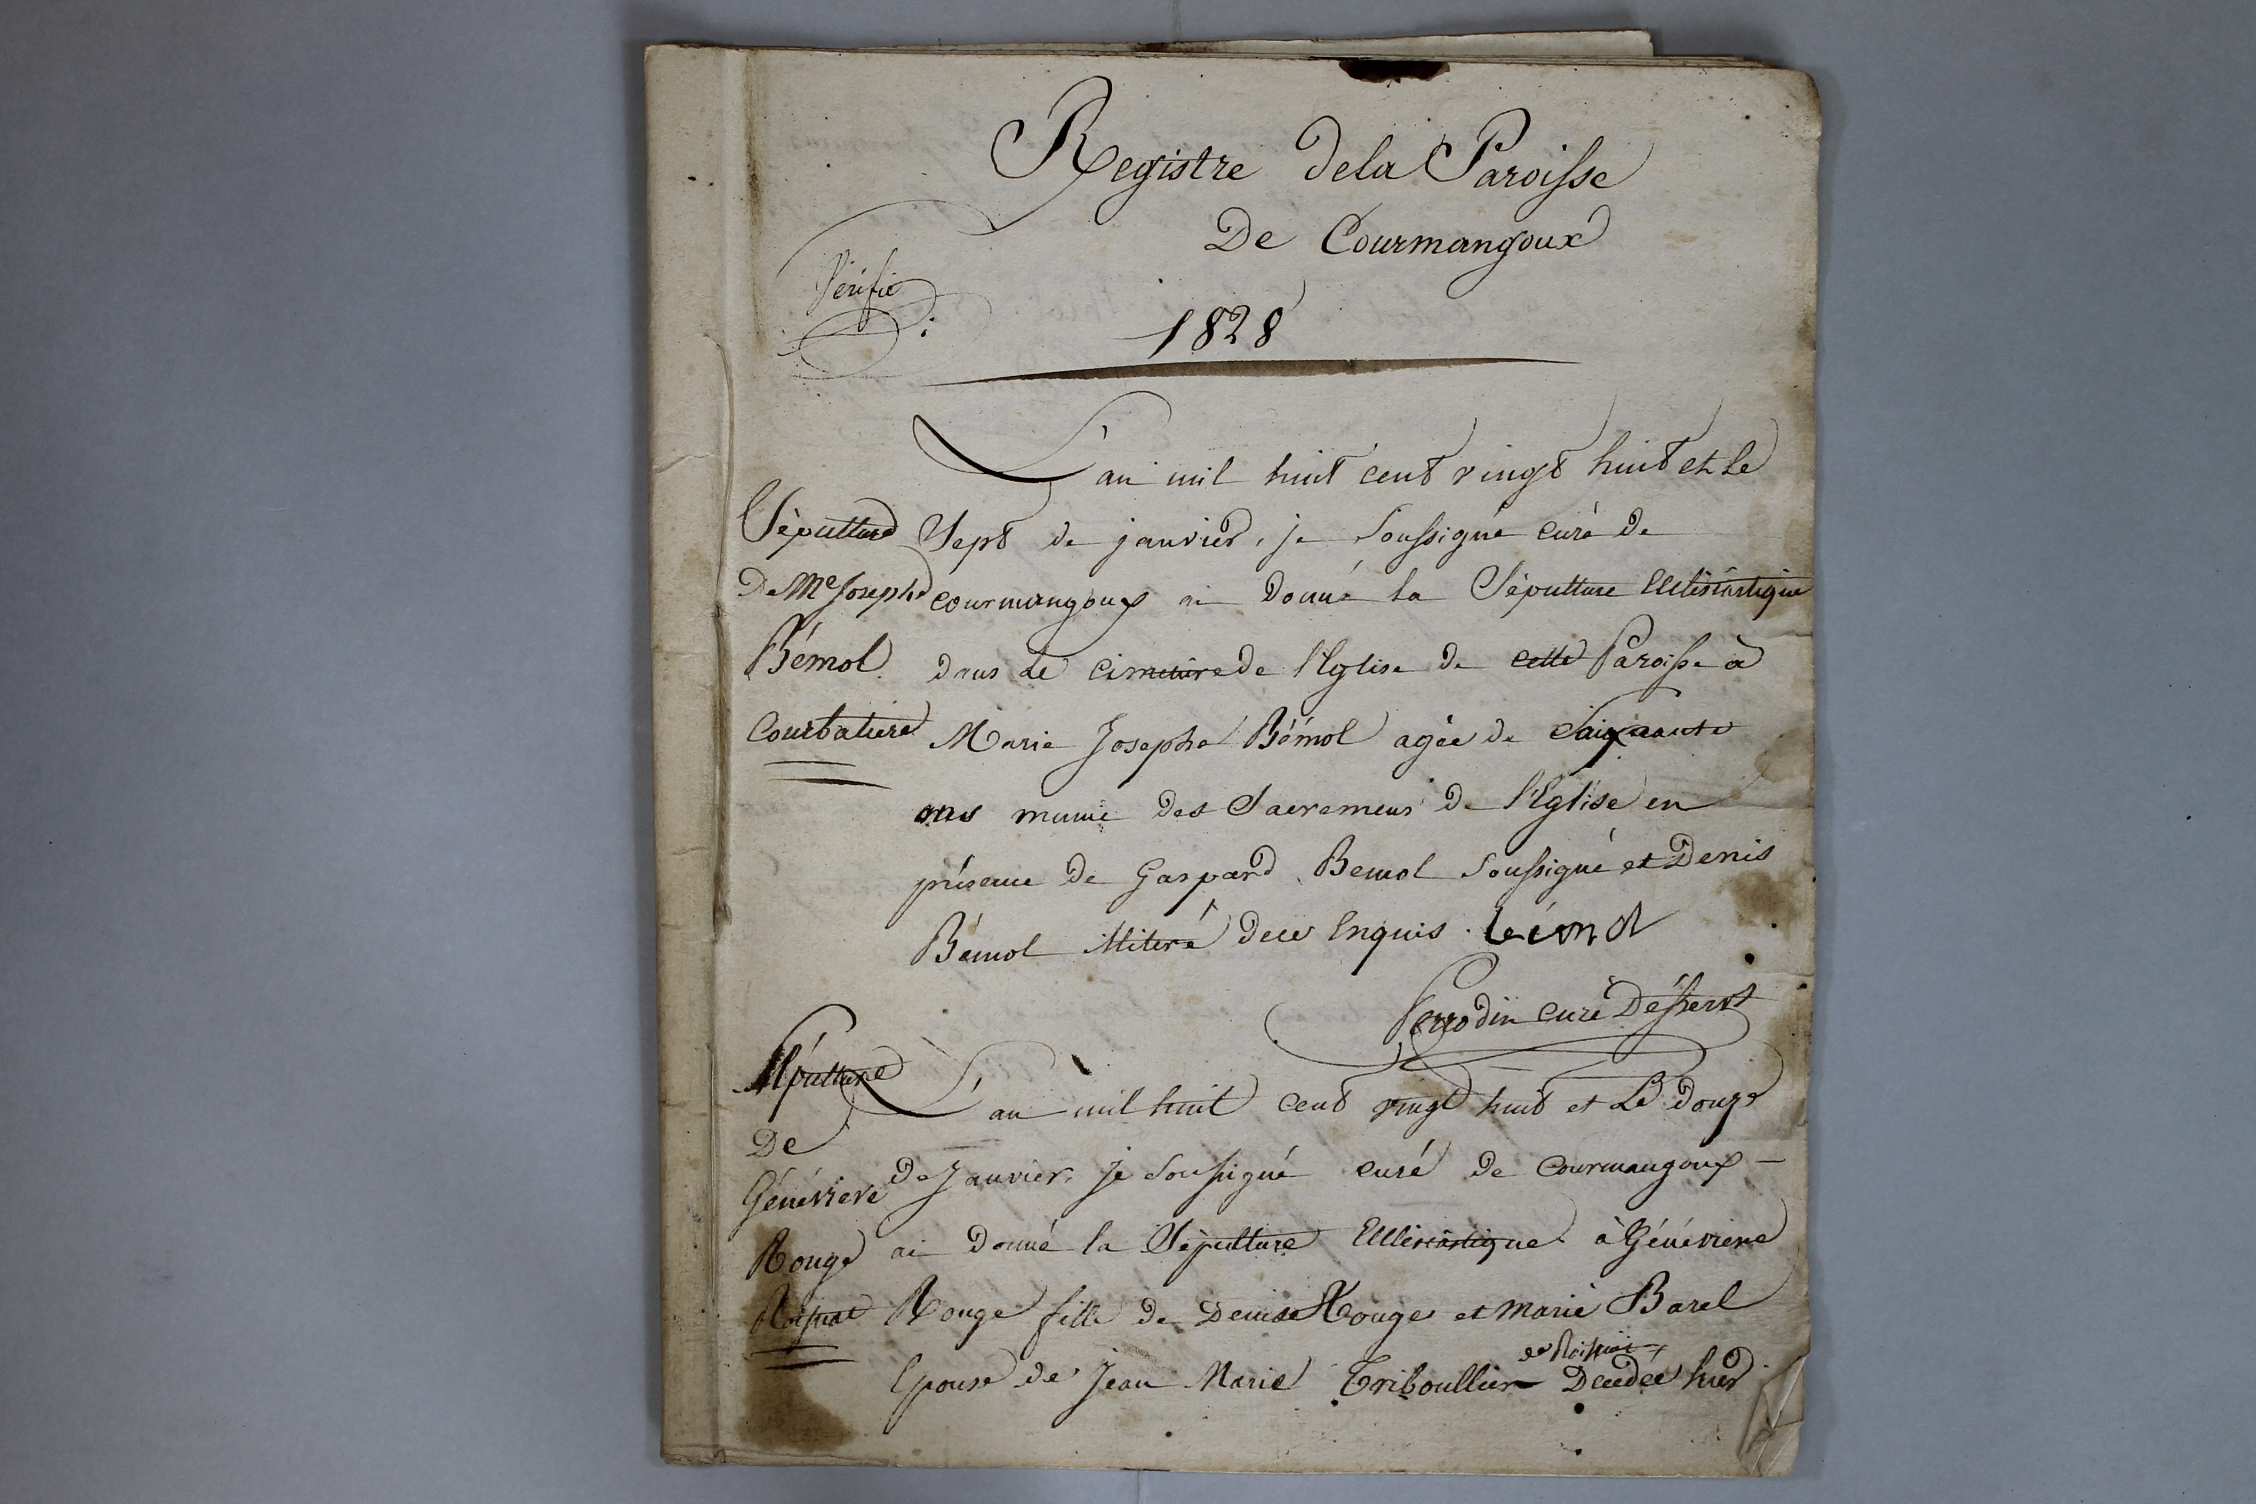 Registre dela Paroisse
De Courmangoux
Vérifié
1828
L'an mil huit cent vingt huit et le
Sépulture
De Me Josephe
Bémol
Courbatiere
Sept de janvier, je Soussigné curé de
courmangoux ai Donné la Sépulture Ecclésiastique
dans le cimetiere de l'Eglise de cette Paroisse à
Marie Josephe Bémol agée de Soixante
ans munie des Sacremens De l'Eglise en
présence De Gaspard Bemol Soussigné et Denis
Bémol illiteré de ce Enquis. bémol
Perrodin curé Desservt
Sépulture
De
Généviève
Rouge
Roissiat
L'an mil huit cent vingt huit et Le Douze
de Janvier, je Soussigné curé de Courmangoux —
ai Donné la Sépulture Ecclésiastique à Généviève
Rouge fille de Denise Rouge et marie Barel
de Roissiat +
Epouse de Jean Marie Triboullier Décédée hier